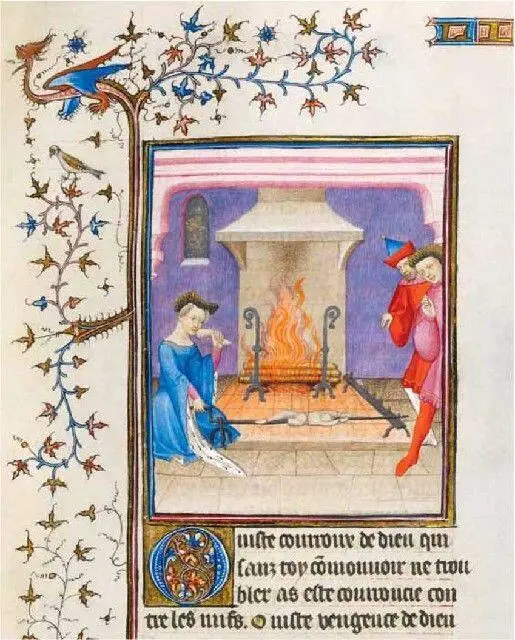 O iuste couroux de dieu qui
sanz toy cõmouuoir ne trou
bler as este couroucie con
tre les iuifs. O iuste vengence de dieu